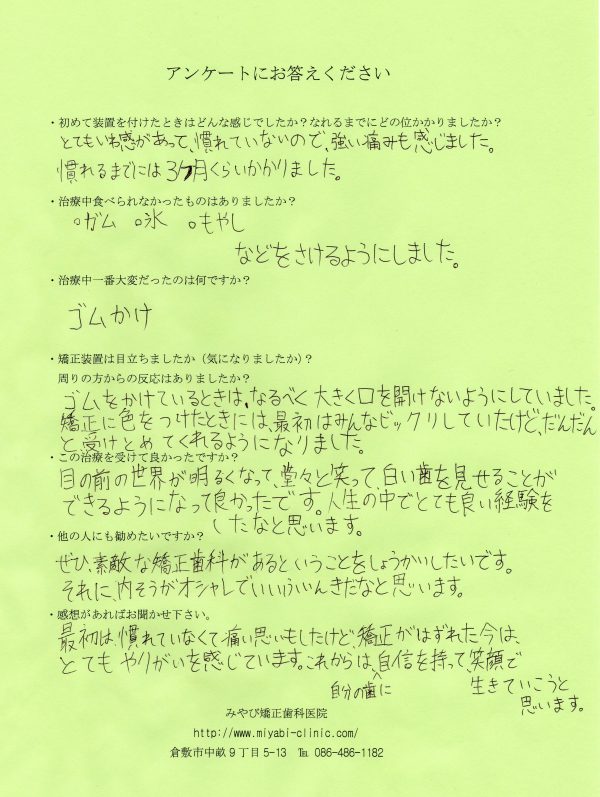 アンケートにお答えください
・初めて装置を付けたときはどんな感じでしたか？なれるまでにどの位かかりましたか？
とてもいわ感があって、慣れていないので、強い痛みも感じました。
慣れるまでには3ヶ月くらいかかりました。
・治療中食べられなかったものはありましたか？
○ガム ○氷 ○もやし
などをさけるようにしました。
・治療中一番大変だったのは何ですか？
ゴムかけ
・矯正装置は目立ちましたか（気になりましたか）？
周りの方からの反応はありましたか？
ゴムをかけているときは、なるべく大きく口を開けないようにしていました。
矯正に色をつけたときには、最初はみんなビックリしていたけど、だんだん
と受けとめてくれるようになりました。
・この治療を受けて良かったですか？
目の前の世界が明るくなって、堂々と笑って、白い歯を見せることが
できるようになって良かったです。人生の中でとても良い経験を
したなと思います。
・他の人にも勧めたいですか？
ぜひ素敵な矯正歯科があるということをしょうかいしたいです。
それに、内そうがオシャレでいいふいんきだなと思います。
・感想があればお聞かせ下さい。
最初は、慣れていなくて痛い思いもしたけど、矯正がはずれた今は、
とてもやりがいを感じています。これからは、自信を持って、笑顔で
自分の歯に
生きていこうと
思います。
みやび矯正歯科医院
http://www.miyabi-clinic.com/
倉敷市中畝９丁目5-13 ℡ 086-486-1182